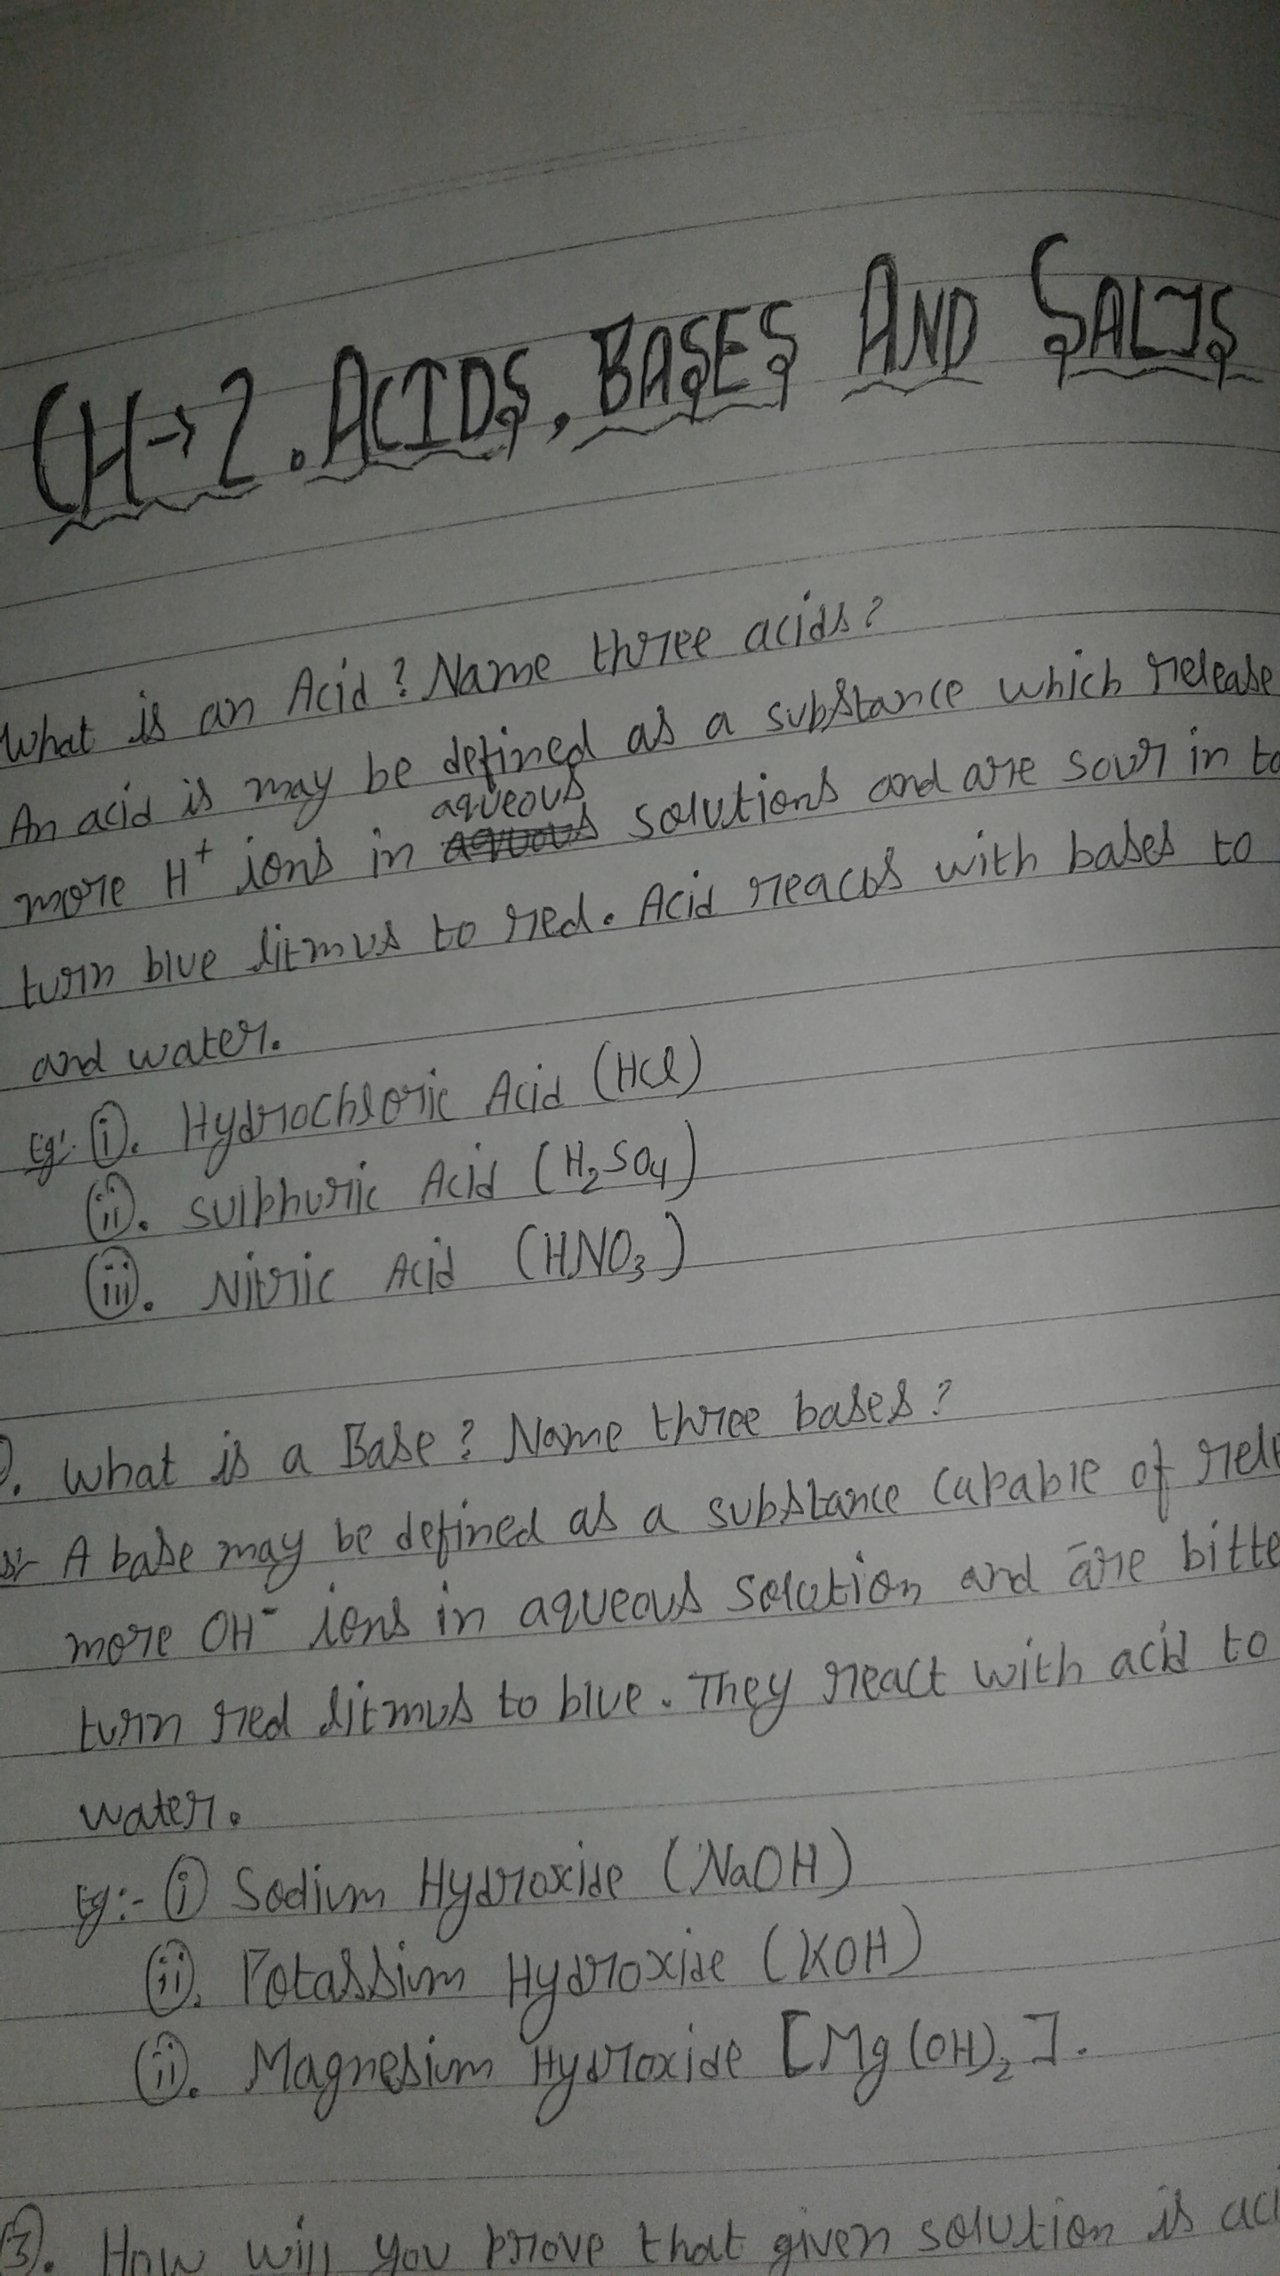 CH→2. ACIDS, BASES AND SALTS
What is an Acid? Name three acids?
An acid is may be defined as a substance which release
more H⁺ ions in aqueous solutions and are sour in
turn blue litmus to red. Acid reacts with bases to
and water.
Eg:- (i). Hydrochloric Acid (HCl)
(ii). Sulphuric Acid (H₂SO₄)
(iii). Nitric Acid (HNO₃)
What is a Base? Name three bases?
A base may be defined as a substance capable of
more OH⁻ ions in aqueous solution and are
turn red litmus to blue. They react with acid to
water.
Eg:- (i) Sodium Hydroxide (NaOH)
(ii). Potassium Hydroxide (KOH)
(ii). Magnesium Hydroxide [Mg(OH)₂].
(3). How will you prove that given solution is